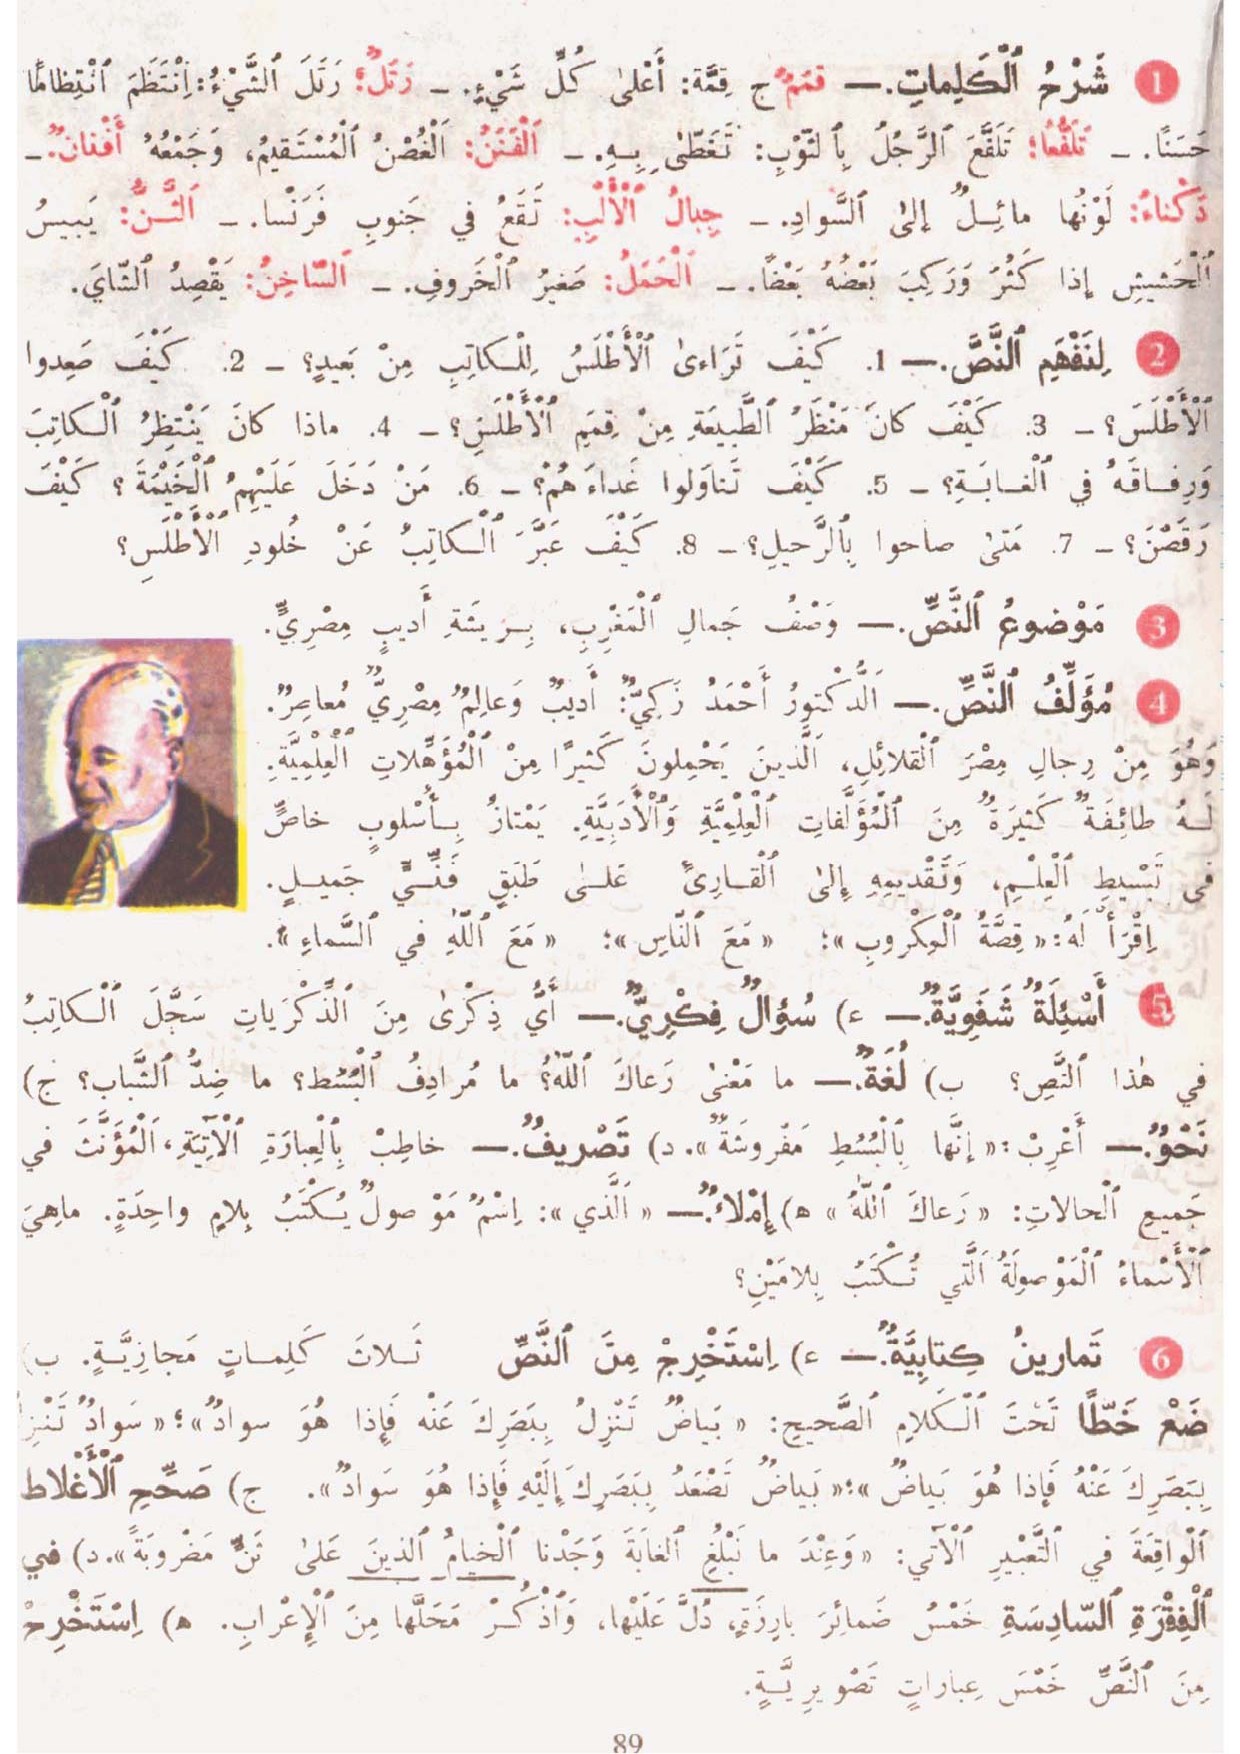 1 شَرْحُ ٱلْكَلِماتِ.— قِمَمٌ ج قِمَّة: أَعْلىٰ كُلِّ شَيْءٍ. – رَتَلٌ: رَتَلَ ٱلشَّيْءُ: اِنْتَظَمَ ٱنْتِظامًا
حَسَنًا. – تَلَفُّعًا: تَلَفَّعَ ٱلرَّجُلُ بِٱلثَّوْبِ: تَغَطّىٰ بِهِ. – اَلْفَنَنُ: اَلْغُصْنُ ٱلْمُسْتَقيمُ، وَجَمْعُهُ أَفْنانٌ. –
دَكْناءُ: لَوْنُها مائِلٌ إلىٰ ٱلسَّوادِ. – جِبالُ ٱلْأَلْبِ: تَقَعُ في جَنوبِ فَرَنْسا. – اَلتَّنُّ: يَبيسُ
ٱلْحَشيشِ إذا كَثُرَ وَرَكِبَ بَعْضُهُ بَعْضًا. – اَلْحَمَلُ: صَغيرُ ٱلْخَروفِ. – اَلسّاخِنُ: يَقْصِدُ ٱلشّايَ.
2 لِنَفْهَمِ ٱلنَّصَّ.— 1. كَيْفَ تَرَاءىٰ ٱلْأَطْلَسُ لِلْكاتِبِ مِنْ بَعيدٍ؟ – 2. كَيْفَ صَعِدوا
ٱلْأَطْلَسَ؟ – 3. كَيْفَ كانَ مَنْظَرُ ٱلطَّبيعَةِ مِنْ قِمَمِ ٱلْأَطْلَسِ؟ – 4. ماذا كانَ يَنْتِظِرُ ٱلْكاتِبَ
وَرِفاقَهُ في ٱلْغابَةِ؟ – 5. كَيْفَ تَناوَلوا غَداءَهُمْ؟ – 6. مَنْ دَخَلَ عَلَيْهِمُ ٱلْخَيْمَةَ؟ كَيْفَ
رَقَصْنَ؟ – 7. مَتىٰ صاحوا بِٱلرَّحيلِ؟ – 8. كَيْفَ عَبَّرَ ٱلْكاتِبُ عَنْ خُلودِ ٱلْأَطْلَسِ؟
3 مَوْضوعُ ٱلنَّصِّ.— وَصْفُ جَمالِ ٱلْمَغْرِبِ، بِريشَةِ أَديبٍ مِصْرِيٍّ.
4 مُؤَلِّفُ ٱلنَّصِّ.— اَلدُّكْتورُ أَحْمَدُ زَكِيٌّ: أَديبٌ وَعالِمٌ مِصْرِيٌّ مُعاصِرٌ.
وَهُوَ مِنْ رِجالِ مِصْرَ ٱلْقَلائِلِ، اَلَّذينَ يَحْمِلونَ كَثيرًا مِنْ ٱلْمُؤَهِّلاتِ ٱلْعِلْمِيَّةِ.
لَهُ طائِفَةٌ كَثيرَةٌ مِنَ ٱلْمُؤَلَّفاتِ ٱلْعِلْمِيَّةِ وَٱلْأَدَبِيَّةِ. يَمْتازُ بِأُسْلوبٍ خاصٍّ
في تَبْسيطِ ٱلْعِلْمِ، وَتَقْديمِهِ إِلىٰ ٱلْقارِئِ عَلىٰ طَبَقٍ فَنِّيٍّ جَميلٍ.
اِقْرَأْ لَهُ: « قِصَّةُ ٱلْمِكْروبِ »؛ « مَعَ ٱلنّاسِ »؛ « مَعَ ٱللّٰهِ في ٱلسَّماءِ ».
5 أَسْئِلَةٌ شَفَوِيَّةٌ.— ء) سُؤالٌ فِكْرِيٌّ.— أَيُّ ذِكْرىٰ مِنَ ٱلذِّكْرَياتِ سَجَّلَ ٱلْكاتِبُ
في هٰذا ٱلنَّصِّ؟ ب) لُغَةٌ.— ما مَعْنىٰ رَعاكَ ٱللّٰهُ؟ ما مُرادِفُ ٱلْبُسُط؟ ما ضِدُّ ٱلشَّباب؟ ج)
نَحْوٌ.— أَعْرِبْ: « إنَّها بِٱلْبُسُطِ مَفْروشَةٌ ». د) تَصْريفٌ.— خاطِبْ بِٱلْعِبارَةِ ٱلْآتِيَةِ، اَلْمُؤَنَّثَ في
جَميعِ ٱلْحالاتِ: « رَعاكَ ٱللّٰهُ » ه) إِمْلاءٌ.— « اَلَّذي »: اِسْمٌ مَوْصولٌ يُكْتَبُ بِلامٍ واحِدَةٍ. ماهِيَ
ٱلْأَسْماءُ ٱلْمَوْصولَةُ ٱلَّتي تُكْتَبُ بِلامَيْنِ؟
6 تَمارينُ كِتابِيَّةٌ.— ء) اِسْتَخْرِجْ مِنَ ٱلنَّصِّ ثَلاثَ كَلِماتٍ مَجازِيَّةٍ. ب)
ضَعْ خَطًّا تَحْتَ ٱلْكَلامِ ٱلصَّحيحِ: « بَياضٌ تَنْزِلُ بِبَصَرِكَ عَنْه فَإِذا هُوَ سوادٌ »؛ « سَوادٌ تَنْزِلُ
بِبَصَرِكَ عَنْهُ فَإِذا هُوَ بَياضٌ »؛ « بَياضٌ تَصْعَدُ بِبَصَرِكَ إِلَيْهِ فَإِذا هُوَ سَوادٌ ». ج) صَحِّحِ ٱلْأَغْلاطَ
ٱلْواقِعَةَ في ٱلتَّعْبيرِ ٱلْآتي: « وَعِنْدَ ما نَبْلُغِ ٱلغابَةَ وَجَدْنا ٱلْخيامُ ٱلذينَ عَلىٰ تَنٍّ مَضْروبَةً ». د) في
ٱلْفِقْرَةِ ٱلسّادِسَةِ خَمْسُ ضَمائِرَ بارِزَةٍ، دُلَّ عَلَيْها، وَٱذْكُرْ مَحَلَّها مِنَ ٱلْإِعْرابِ. ه) اِسْتَخْرِجْ
مِنَ ٱلنَّصِّ خَمْسَ عِباراتٍ تَصْويرِيَّةٍ.
89